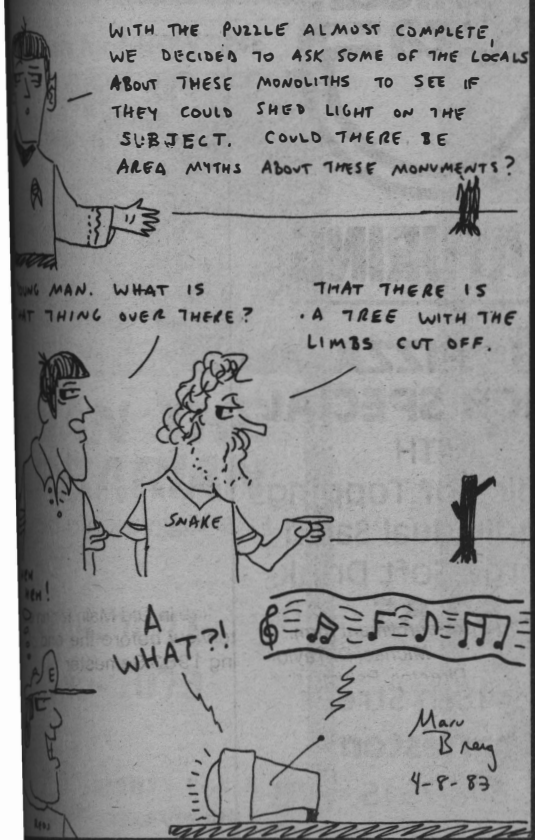 WITH THE PUZZLE ALMOST COMPLETE,
WE DECIDED TO ASK SOME OF THE LOCALS
ABOUT THESE MONOLITHS TO SEE IF
THEY COULD SHED LIGHT ON THE
SUBJECT. COULD THERE BE
AREA MYTHS ABOUT THESE MONUMENTS?
MAN. WHAT IS
THING OVER THERE?
THAT THERE IS
A TREE WITH THE
LIMBS CUT OFF.
SNAKE
A
WHAT?!
4-8-83